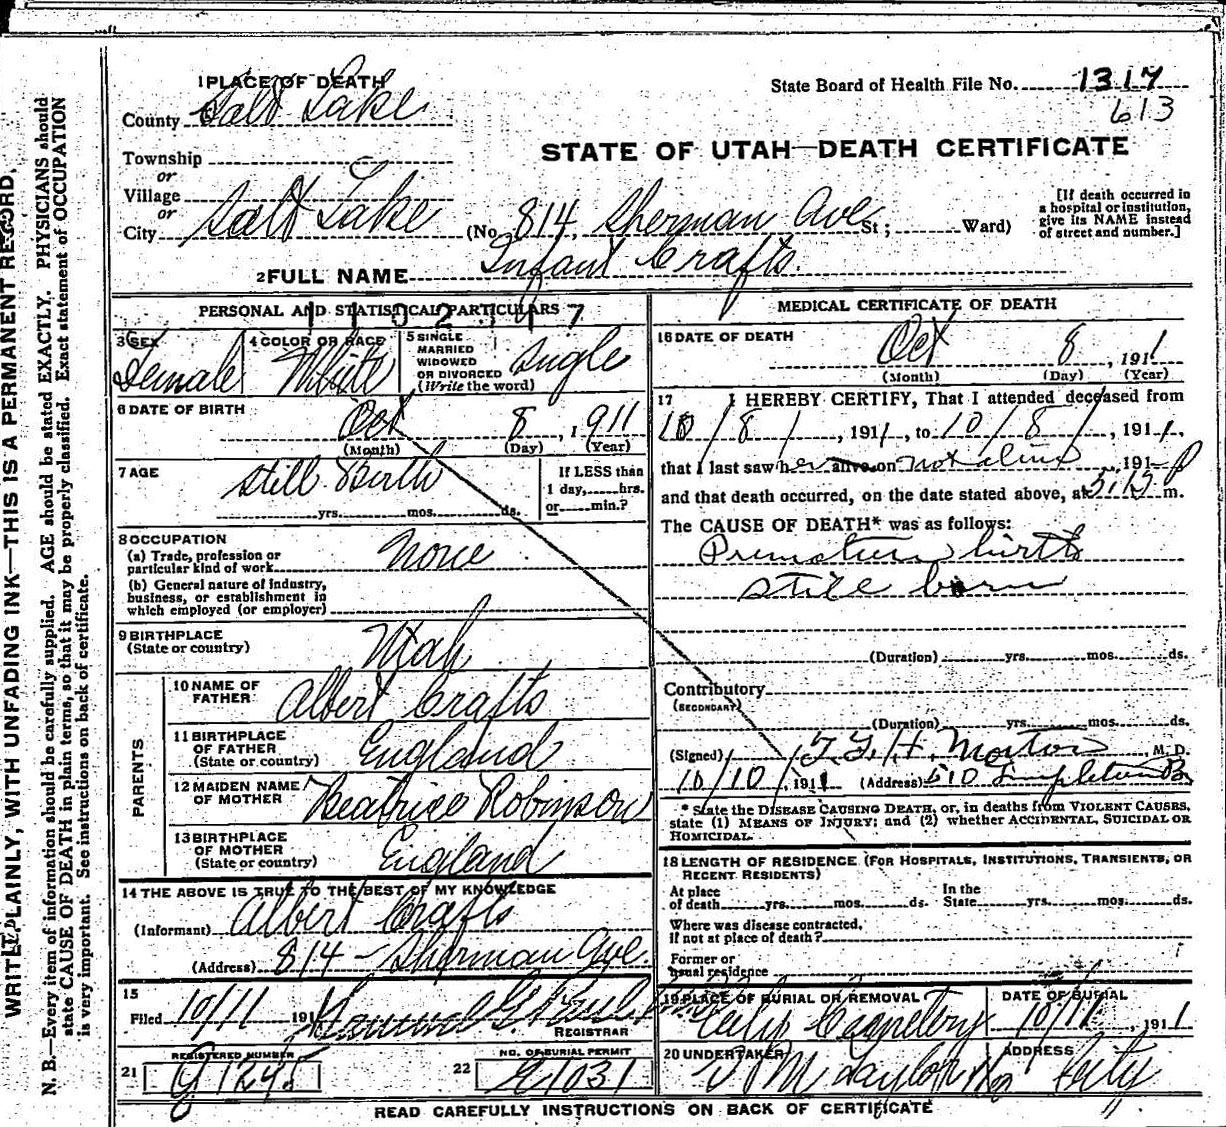 1 PLACE OF DEATH
State Board of Health File No. 1317
613
County Salt Lake
STATE OF UTAH—DEATH CERTIFICATE
Township
or
Village
or
City Salt Lake (No. 814, Sherman Ave St; Ward)
[If death occurred in
a hospital or institution,
give its NAME instead
of street and number.]
2 FULL NAME Infant Crafts.
PERSONAL AND STATISTICAL PARTICULARS
3 SEX Female
4 COLOR OR RACE White
5 SINGLE
MARRIED
WIDOWED
OR DIVORCED
(Write the word) Single
6 DATE OF BIRTH
Oct 8, 1911
(Month) (Day) (Year)
7 AGE
Still Birth
yrs. mos. ds.
If LESS than
1 day, hrs.
or min.?
8 OCCUPATION
(a) Trade, profession or
particular kind of work None
(b) General nature of industry,
business, or establishment in
which employed (or employer)
9 BIRTHPLACE
(State or country) Utah
PARENTS
10 NAME OF
FATHER Albert Crafts
11 BIRTHPLACE
OF FATHER
(State or country) England
12 MAIDEN NAME
OF MOTHER Beatrice Robinson
13 BIRTHPLACE
OF MOTHER
(State or country) England
14 THE ABOVE IS TRUE TO THE BEST OF MY KNOWLEDGE
(Informant) Albert Crafts
(Address) 814 - Sherman Ave.
15
Filed 10/11 191
REGISTRAR
REGISTERED NUMBER
21
NO. OF BURIAL PERMIT
22
MEDICAL CERTIFICATE OF DEATH
16 DATE OF DEATH
Oct 8, 1911
(Month) (Day) (Year)
17 I HEREBY CERTIFY, That I attended deceased from
10/8/, 1911, to 10/8/, 1911.
that I last saw her alive on not alive, 191
and that death occurred, on the date stated above, at m.
The CAUSE OF DEATH* was as follows:
Premature birth
still born
(Duration) yrs. mos. ds.
Contributory
(SECONDARY)
(Duration) yrs. mos. ds.
(Signed) Morton, M. D.
10/10/, 1911 (Address) 510 Templeton
* State the DISEASE CAUSING DEATH, or, in deaths from VIOLENT CAUSES,
state (1) MEANS OF INJURY; and (2) whether ACCIDENTAL, SUICIDAL OR
HOMICIDAL.
18 LENGTH OF RESIDENCE (FOR HOSPITALS, INSTITUTIONS, TRANSIENTS, OR
RECENT RESIDENTS)
At place
of death yrs. mos. ds.
In the
State yrs. mos. ds.
Where was disease contracted,
if not at place of death?
Former or
usual residence
19 PLACE OF BURIAL OR REMOVAL
City Cemetery
DATE OF BURIAL
10/11, 1911
20 UNDERTAKER
Taylor
ADDRESS
City
READ CAREFULLY INSTRUCTIONS ON BACK OF CERTIFICATE
WRITE PLAINLY, WITH UNFADING INK—THIS IS A PERMANENT RECORD.
N. B.—Every item of information should be carefully supplied. AGE should be stated EXACTLY. PHYSICIANS should
state CAUSE OF DEATH in plain terms, so that it may be properly classified. Exact statement of OCCUPATION
is very important. See instructions on back of certificate.